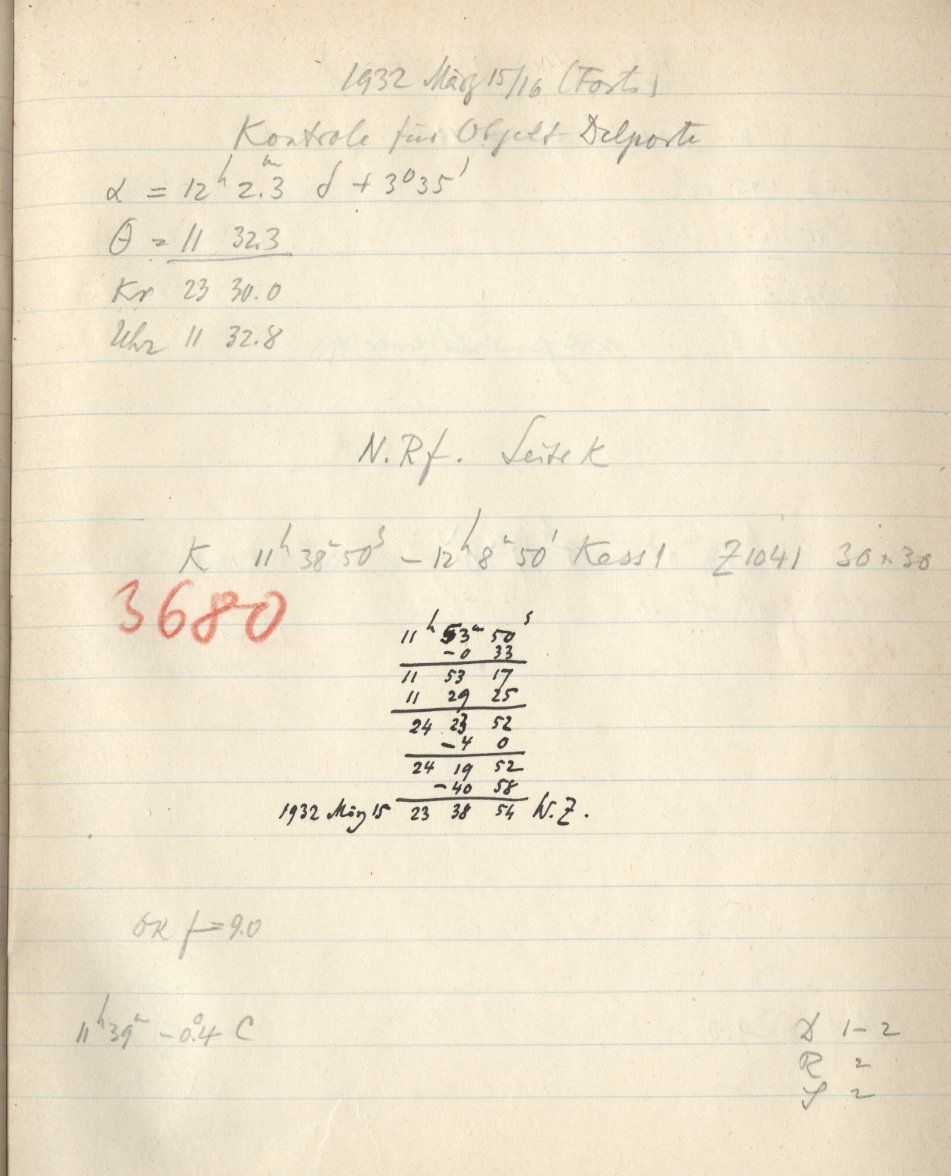 1932 März 15/16 (Forts.)
Kontrole für Objekt Delporte
α = 12ʰ 2.ᵐ3 δ + 3°35'
θ = 11 32.3
Kr 23 30.0
Uhr 11 32.8
N.Rf. Seite K
K 11ʰ 38ᵐ 50ˢ – 12ʰ 8ᵐ 50ˢ Kessl Z1041 30×30
3680
11ʰ 53ᵐ 50ˢ
-0 33
11 53 17
11 29 25
24 23 52
-4 0
24 19 52
-40 58
1932 März 15 23 38 54 W.Z.
OK f=9.0
11ʰ39ᵐ -0.°4 C
D 1-2
R 2
S 2